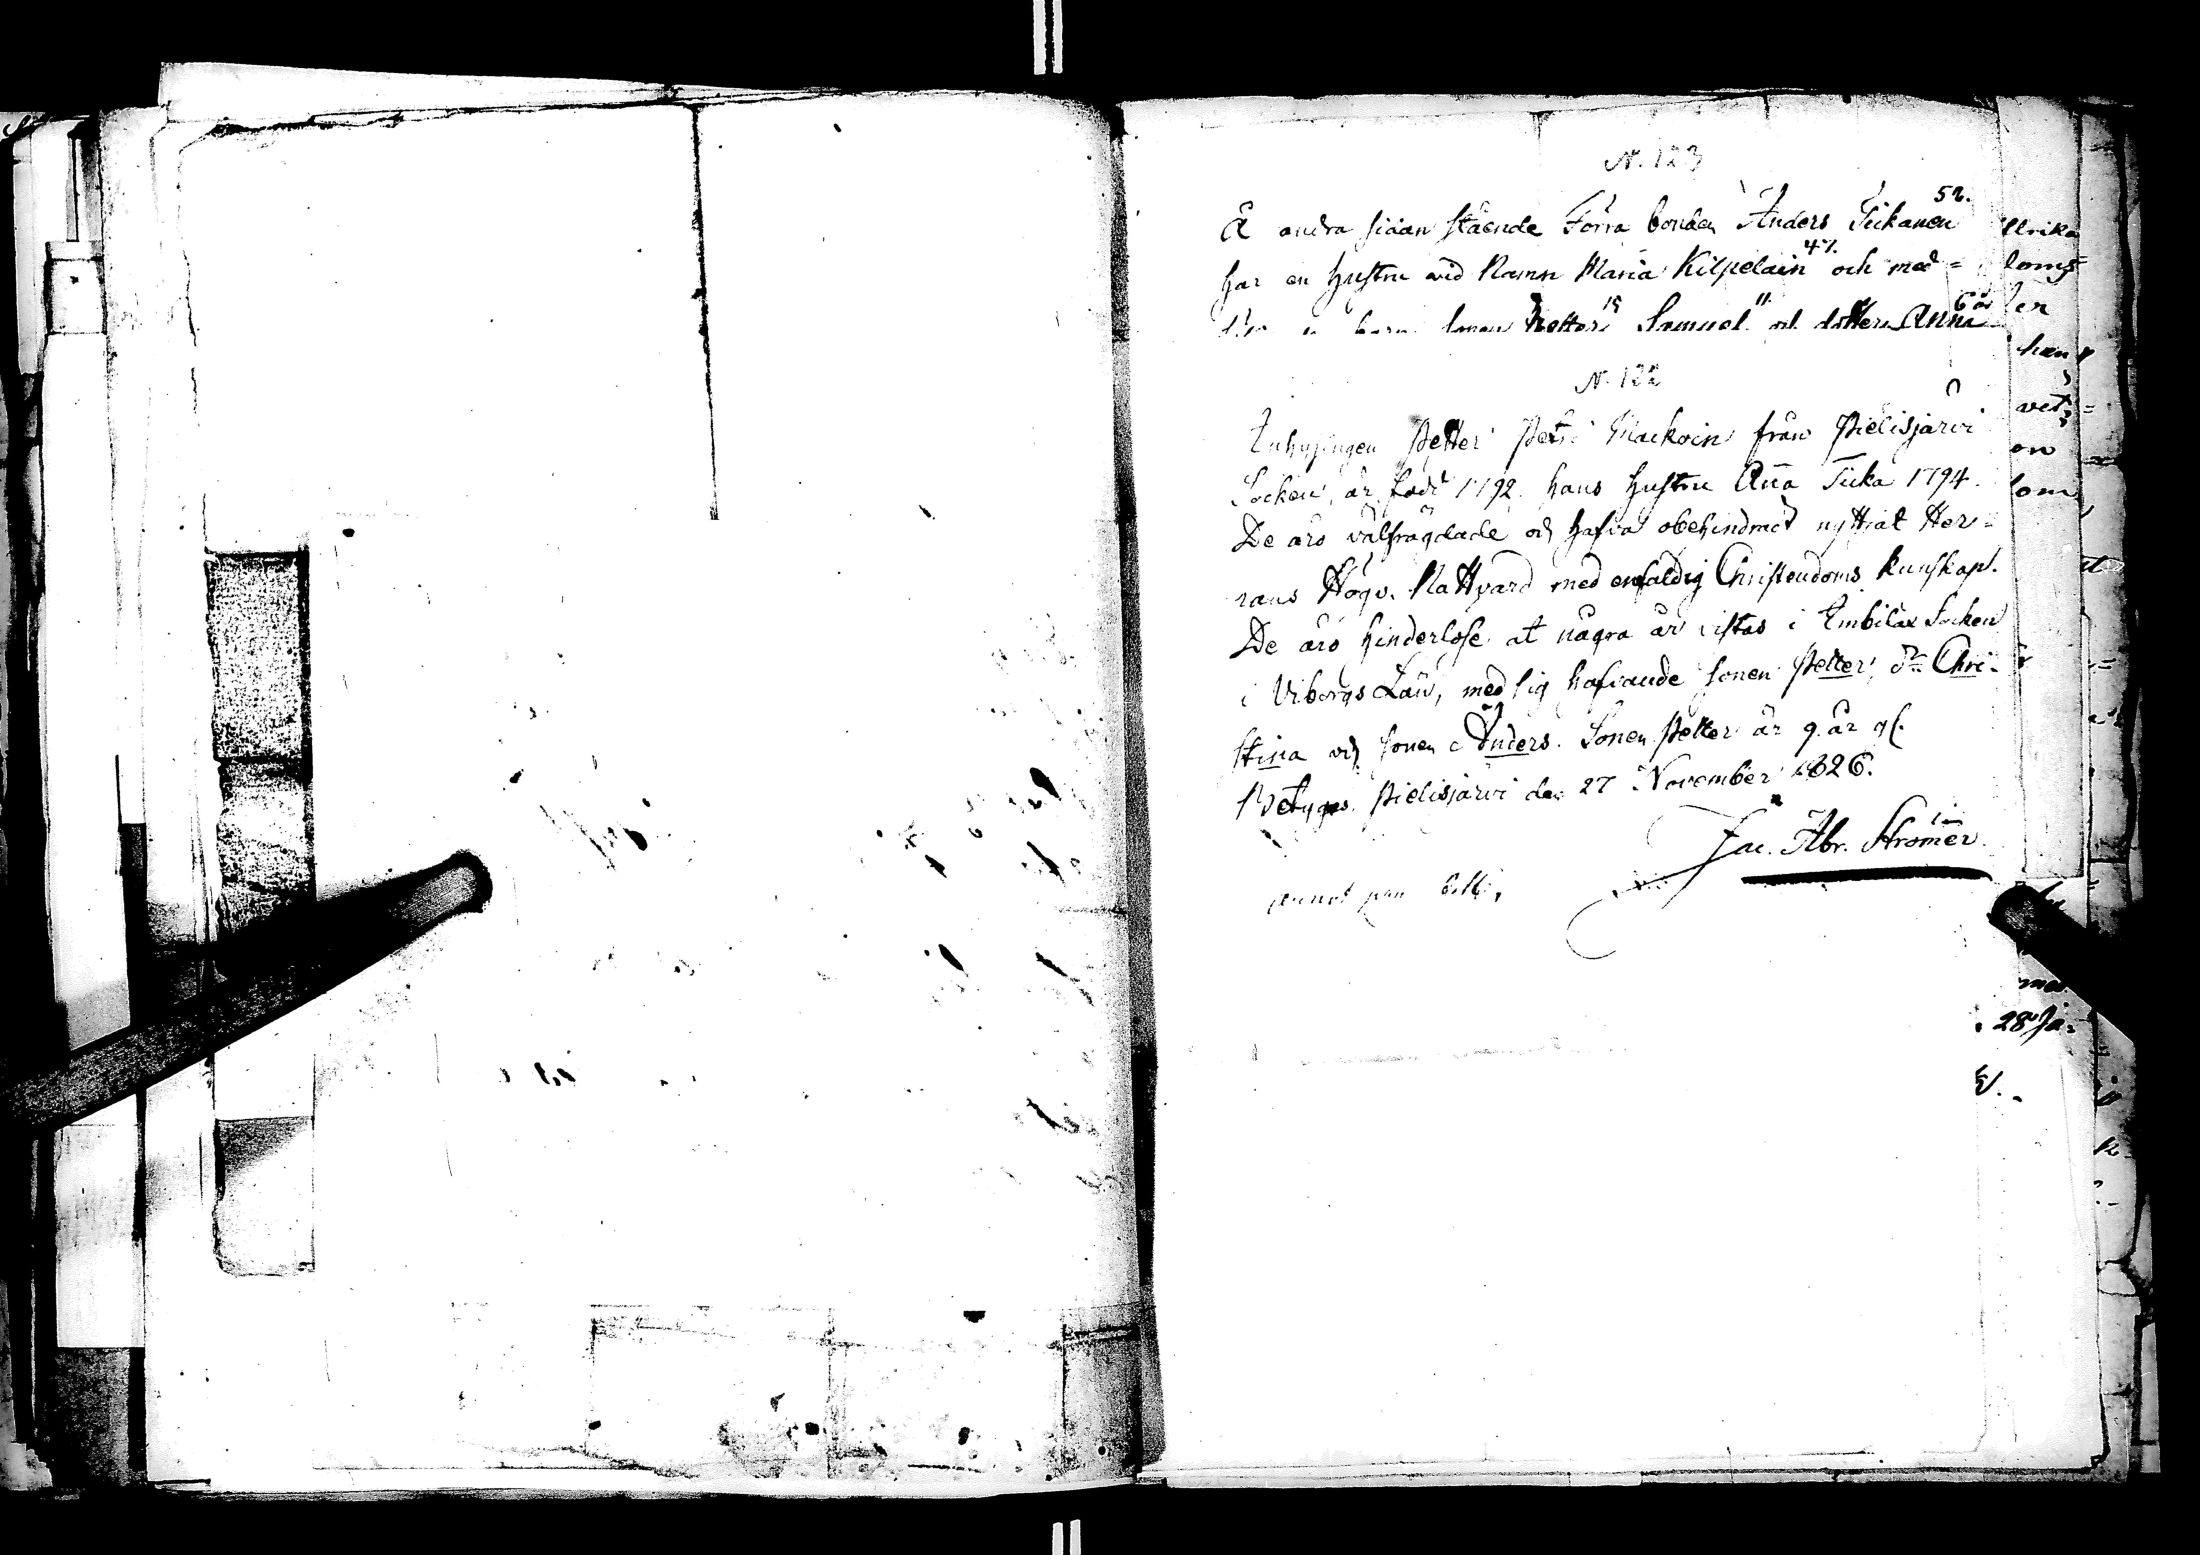 N. 123
52.
Å andra sidan stående Förra bonden Anders Tiikanen
47.
har en hustru vid Namn Maria Kilpelain och med =
15 11. 6 år
barn sonen Petter Samuel och dottern Anna
N. 122
Inhysingen Petter Petri Mackoin från Pielisjärvi
Socken, är född 1792. hans hustru Anna Tiika 1794.
De äro välfrägdade och hafva obehindradt nyttjat Her=
rans Högv. Nattvard med enfaldig Christendoms kunskap.
De äro hinderlöse at några år vistas i Imbilax Socken
i Viborgs Län, med sig hafvande sonen Petter, dr Chri-
stina och sonen Anders. Sonen Petter är 9 år gl.
Betygas. Pielisjärvi den 27 November 1826.
Jac. Abr. Strömer
Ulrika
loms=
en
han
vet
on
som
28 Ja=